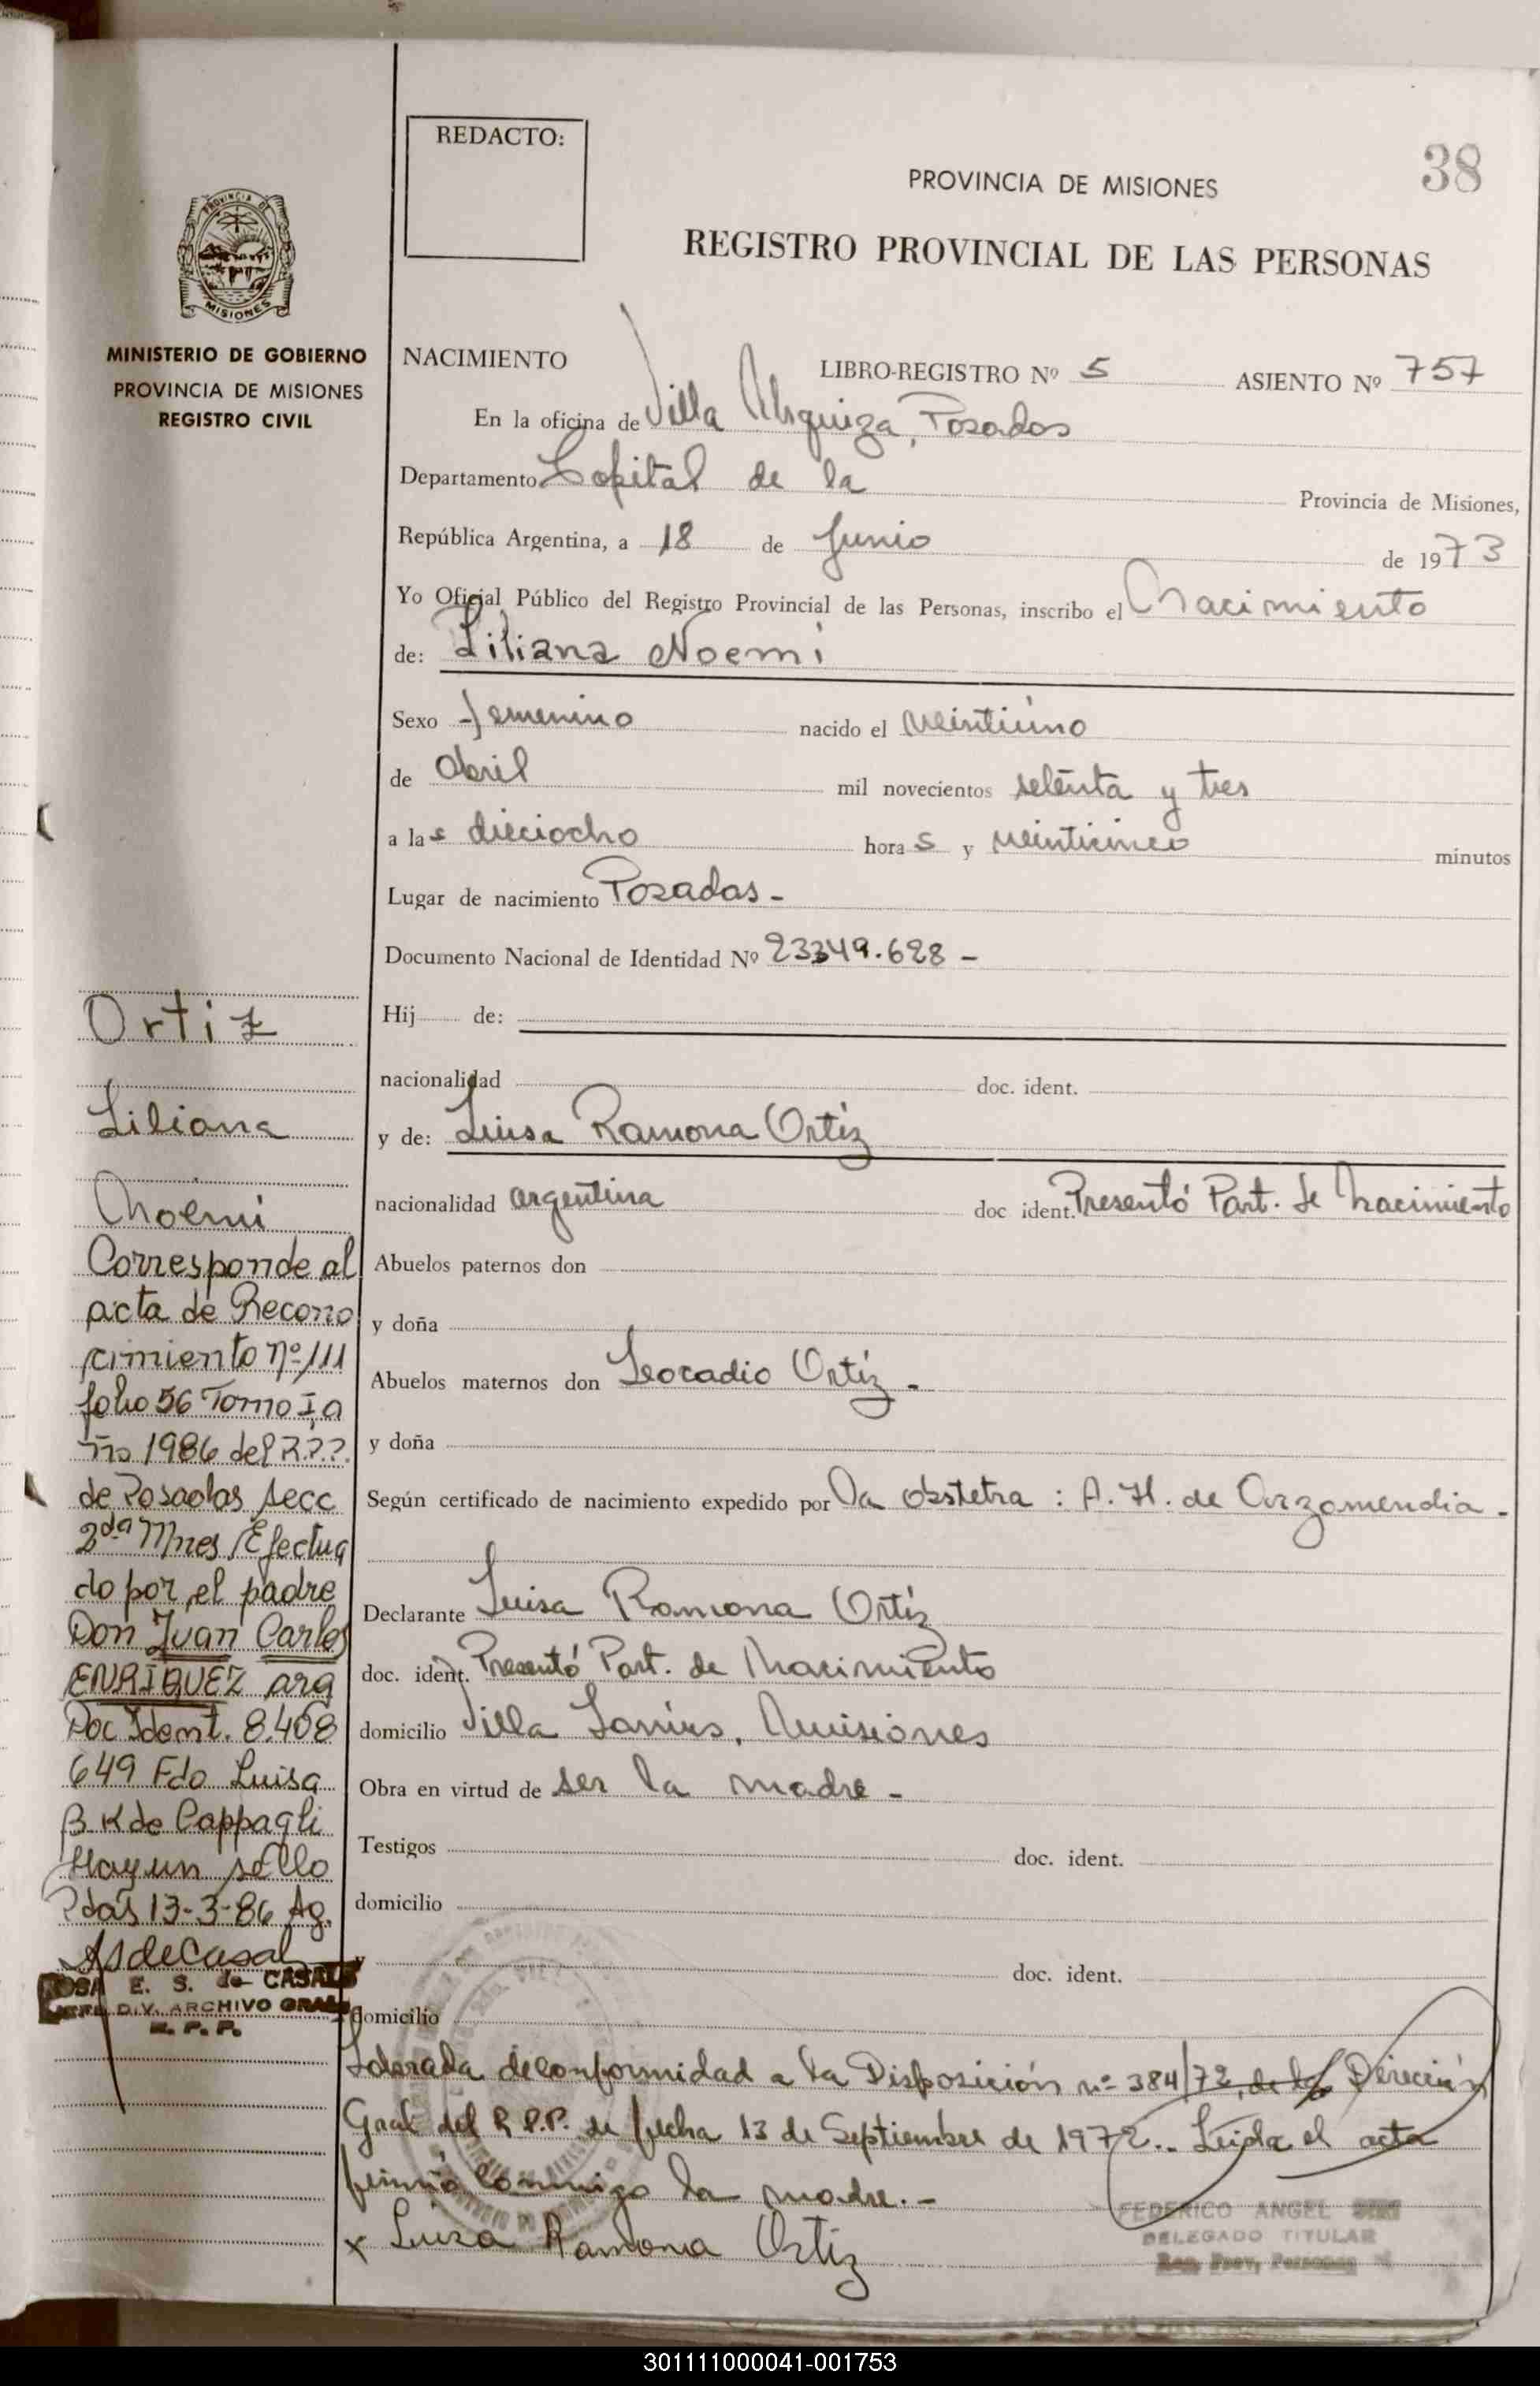 REDACTO:
38
PROVINCIA DE MISIONES
REGISTRO PROVINCIAL DE LAS PERSONAS
PROVINCIA DE
MISIONES
MINISTERIO DE GOBIERNO
PROVINCIA DE MISIONES
REGISTRO CIVIL
NACIMIENTO LIBRO-REGISTRO Nº 5 ASIENTO Nº 757
En la oficina de Villa Urquiza, Posadas
Departamento Capital de la Provincia de Misiones,
República Argentina, a 18 de Junio de 1973
Yo Oficial Público del Registro Provincial de las Personas, inscribo el Nacimiento
de: Liliana Noemi
Sexo femenino nacido el veintiúno
de Abril mil novecientos setenta y tres
a las dieciocho horas y veinticinco minutos
Lugar de nacimiento Posadas -
Documento Nacional de Identidad Nº 23349.628 -
Hij de:
nacionalidad doc. ident.
y de: Luisa Ramona Ortiz
nacionalidad argentina doc ident. Presentó Part. de Nacimiento
Abuelos paternos don
y doña
Abuelos maternos don Leocadio Ortíz -
y doña
Según certificado de nacimiento expedido por la obstetra : A. H. de Arzamendia -
Declarante Luisa Ramona Ortíz
doc. ident. Presentó Part. de Nacimiento
domicilio Villa Lanús, Misiones
Obra en virtud de ser la madre -
Testigos doc. ident.
domicilio
y doc. ident.
domicilio
Labrada de conformidad a la Disposición nº 384/72, de la Dirección
Gral del R.P.P. de fecha 13 de Septiembre de 1972.. Leída el acta
firmó conmigo la madre. -
x Luisa Ramona Ortiz
FEDERICO ANGEL
DELEGADO TITULAR
Reg. Prov. Personas
Ortiz
Liliana
Noemi
Corresponde al
acta de Recono
cimiento nº 111
folio 56 Tomo I, a
ño 1986 del R.P.P.
de Posadas secc
2da Mnes / Efectua
do por el padre
Don Juan Carlos
ENRIQUEZ arg
Doc Ident. 8.408
649 Fdo Luisa
B K de Cappagli
Hay un sello
Pdas 13-3-86 Ag.
ROSA E. S. de CASALS
JEFE DIV. ARCHIVO GRAL
R. P. P.
301111000041-001753